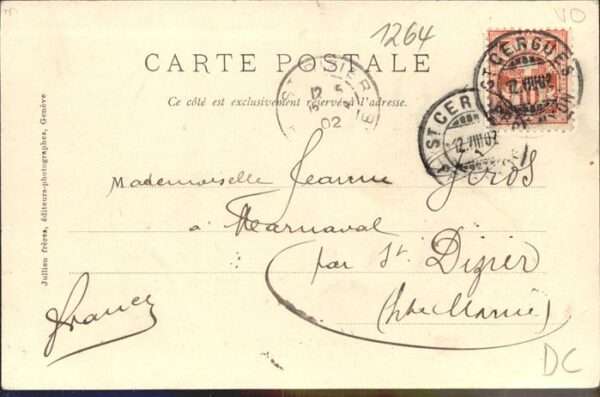 1264
VO
CARTE POSTALE
Ce côté est exclusivement réservé à l'adresse.
ST CERGUES
12.VIII.02
ST CERGUES
12.VIII.02
ST DIZIER
12
02
Mademoiselle Jeanne
à
par St Dizier
(Hte Marne)
France
DC
Jullien frères, éditeurs-photographes, Genève